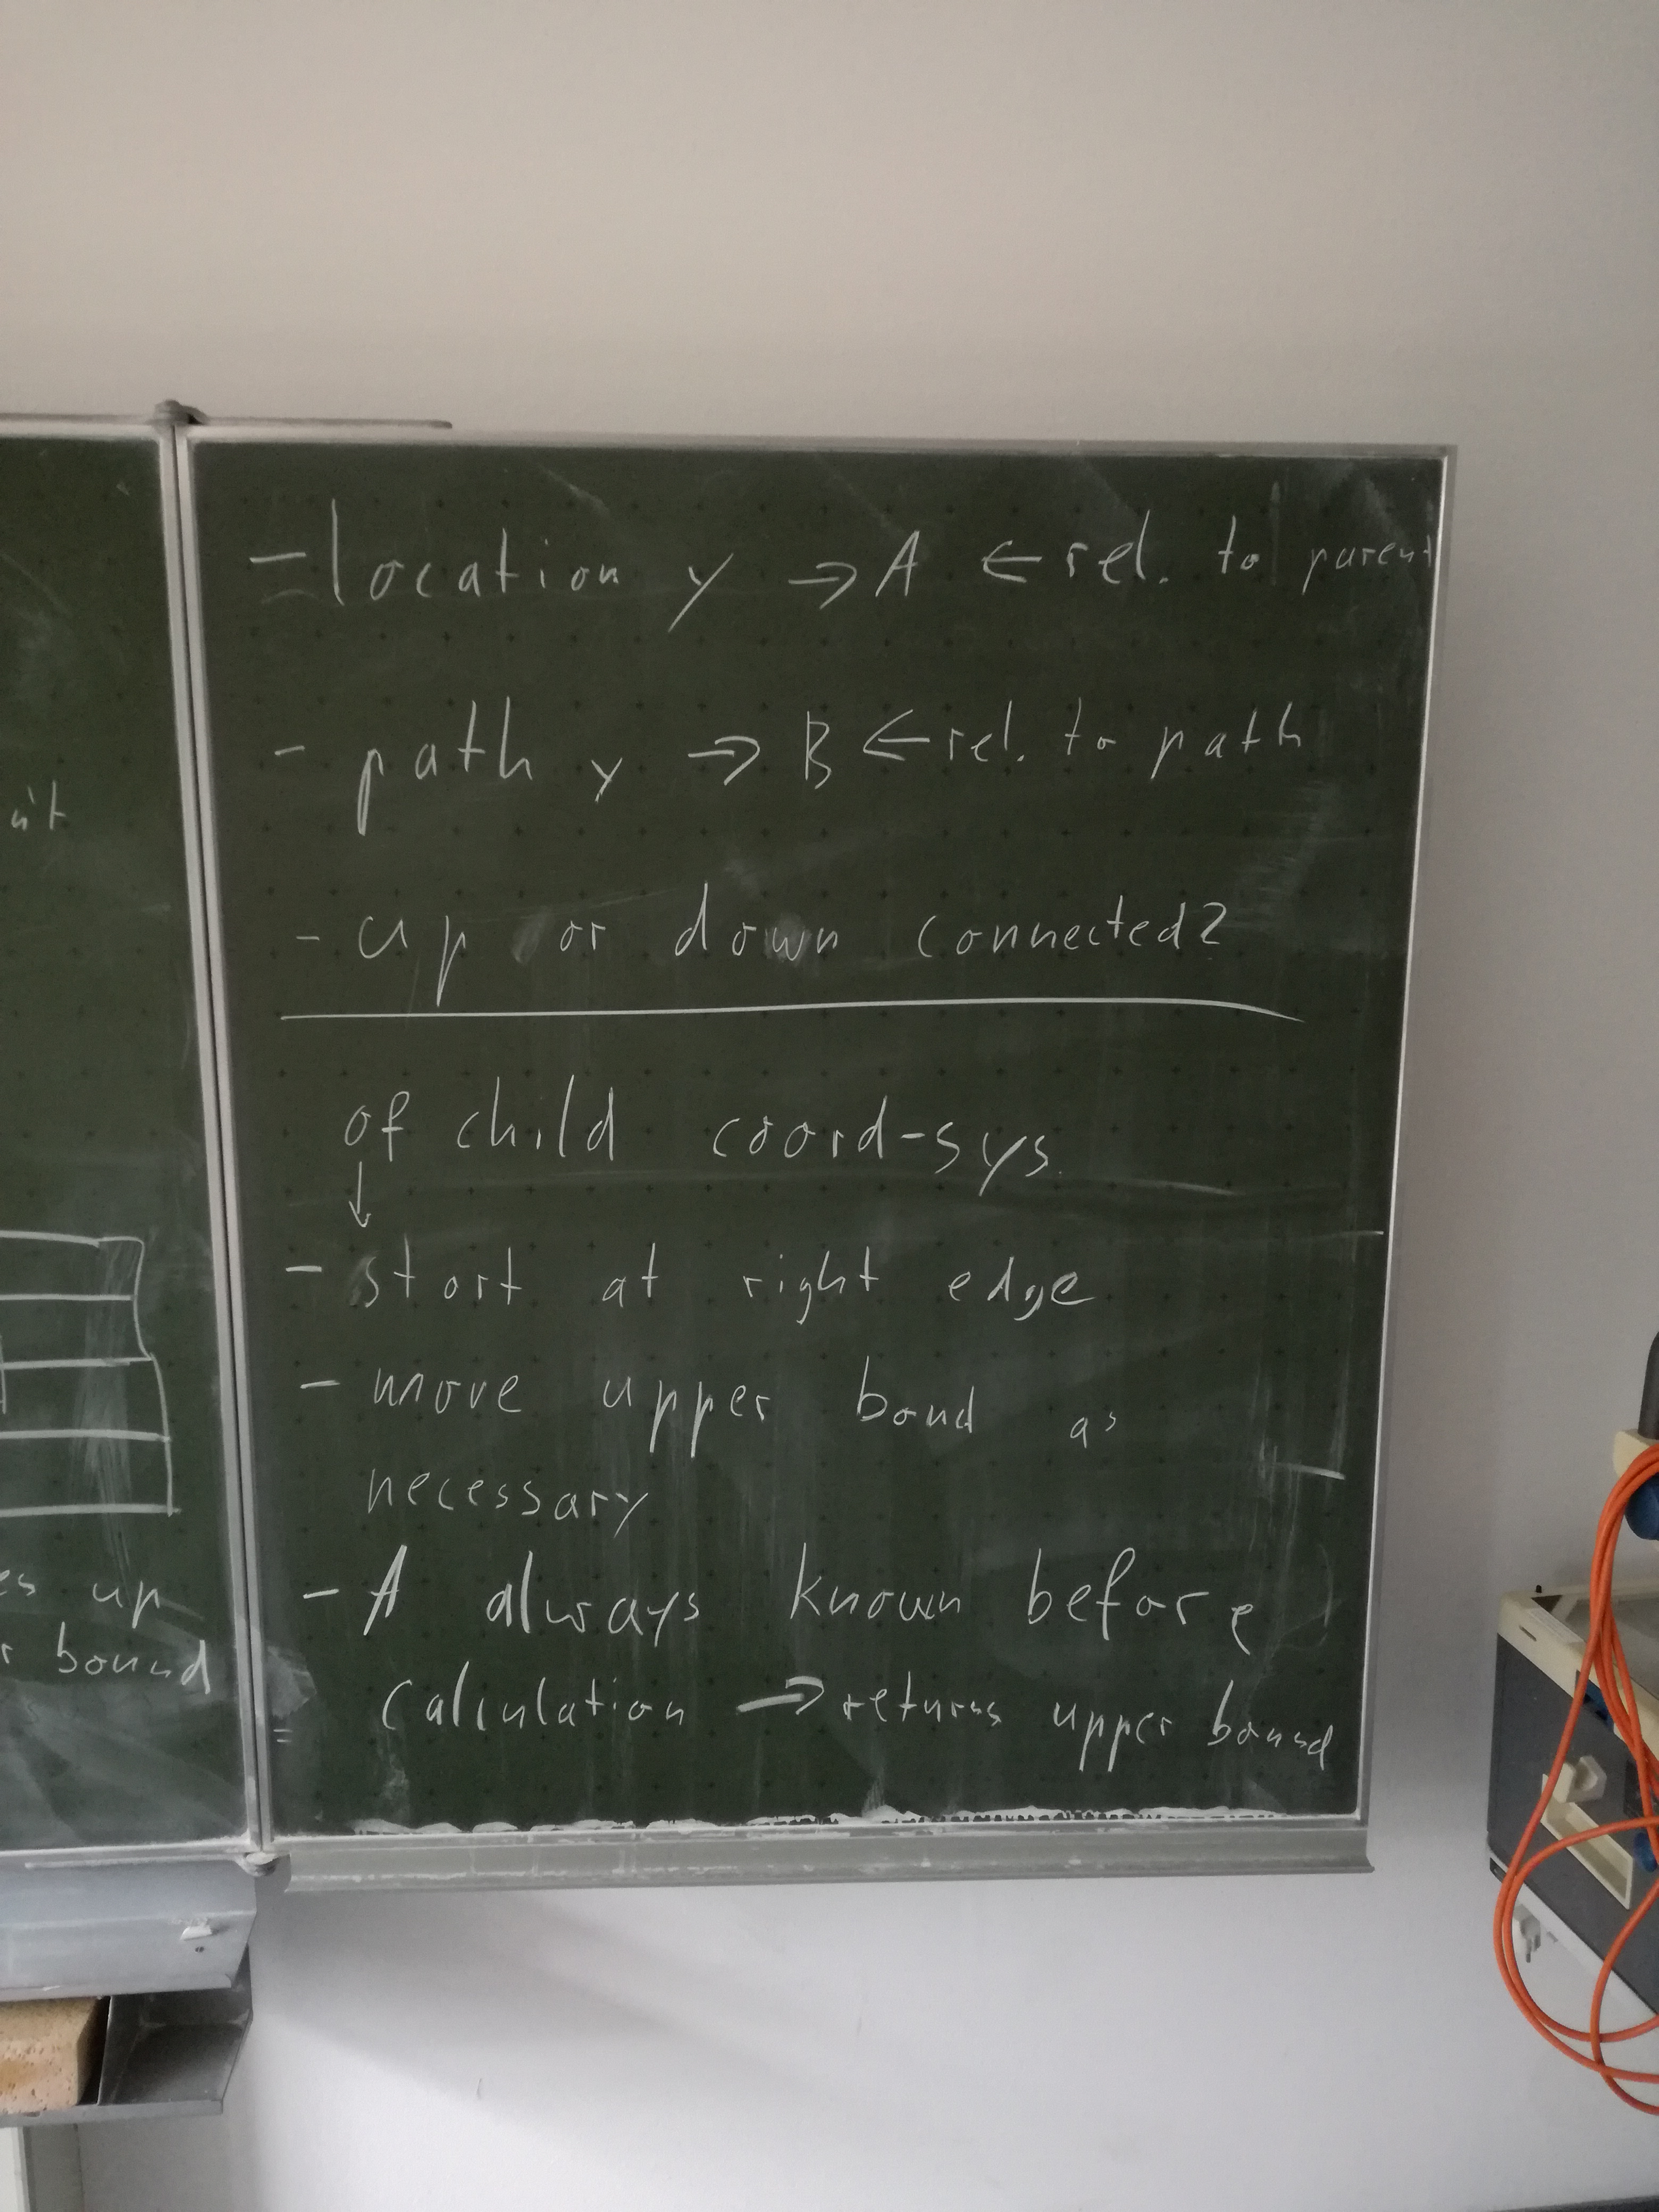 - location y → A ← rel. to parent
- path y → B ← rel. to path
- up or down connected?
of child coord-sys.
↓
- start at right edge
- move upper bond as
necessary
- A always known before
calculation → returns upper bound
n't
es up
r bound